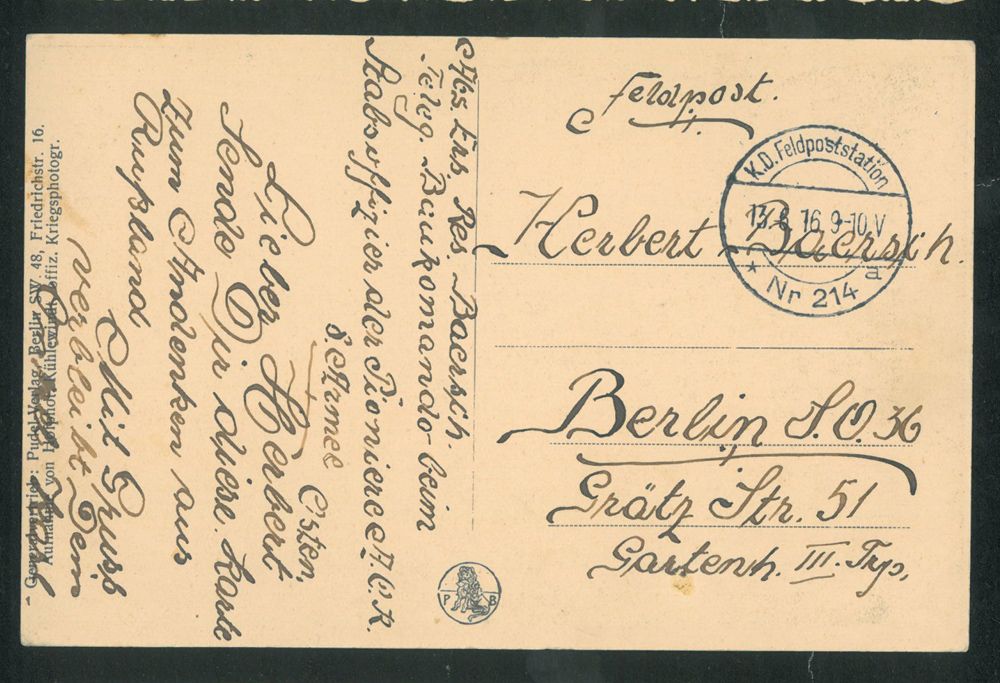 Feldpost.
K.D. Feldpoststation
13.8.16.9-10.V
* Nr 214 a
Herbert Baersch.
Berlin S.O. 36
Grätz Str. 51
Gartenh. III. Trp,
Abs. Ers. Res. Baersch.
Teleg. Baukomando beim
Stabsoffizier der Pioniere A.O.K.
8. Armee
Osten,
Lieber Herbert
Sende Dir diese. Karte
zum Andenken aus
Rußland
Mit Gruss
verbleibt Dein
P B
Generalvertrieb: Pudel-Verlag, Berlin SW. 48, Friedrichstr. 16.
von Hofphot. Kühlewindt, offiz. Kriegsphotogr.